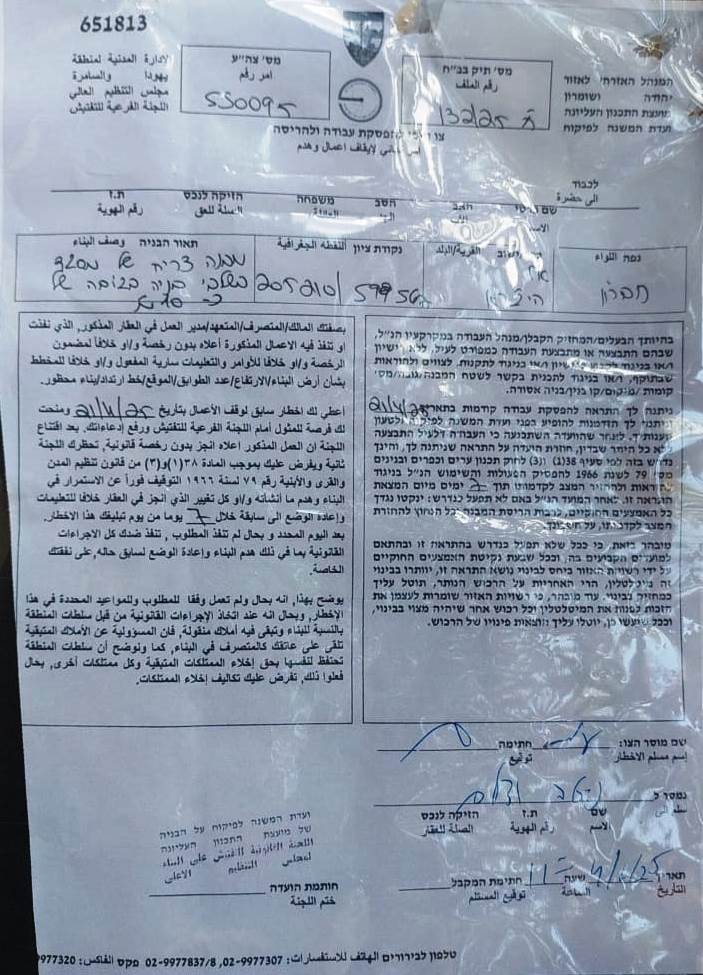 651813
המנהל האזרחי לאזור
יהודה ושומרון
מועצת התכנון העליונה
ועדת המשנה לפיקוח
מס׳ תיק בב״ח
رقم الملف
132/25
מס׳ צה״ע
امر رقم
550095
لادارة المدنية لمنطقة
يهودا والسامرة
مجلس التنظيم العالي
اللجنة الفرعية للتفتيش
להפסקת עבודה ולהריסה
لايقاف اعمال وهدم
לכבוד
الى حضرة
משפחה
הזיקה לנכס
الصلة للعق
ת.ז
رقم الهوية
נפה اللواء
חברון
הישוב القرية/البلد
נקודת ציון النقطه الجغرافية
205210/599561
תאור הבניה وصف البناء
בהיותך הבעלים/המחזיק הקבלן/מנהל העבודה במקרקעין הנ״ל,
שבהם התבצעה או מתבצעת העבודה כמפורט לעיל, ללא רישיון
ו/או בניגוד לתקנות. לצווים ולהוראות
שבתוקף, ו/או בניגוד לתכנית בקשר לשטח המבנה/גובה/מס׳
קומות /מיקום/קו בנין/בניה אסורה.
ניתנה לך התראה להפסקת עבודה קודמות בתאריך
ניתנה לך הזדמנות להופיע בפני ועדת המשנה לפיקוח ולטעון
טענותיך. לאחר שהוועדה השתכנעה כי העבודה דלעיל התבצעה
ללא כל היתר שבדין, חוזרת הועדה על התראה שניתנה לך, והינך
נדרש בזה לפי סעיף 38(1) ו(3) לחוק תכנון ערים וכפרים ובנינים
מס׳ 79 לשנת 1966 להפסיק הפעולות והשימוש הנ״ל בניגוד
להוראות ולהחזיר המצב לקדמותו תוך 7 ימים מיום המצאת
הוראה זו. לאחר המועד הנ״ל באם לא תפעל כנדרש: ינקטו נגדך
כל האמצעים החוקיים, לרבות הריסת המבנה וכל הנחוץ להחזרת
המצב לקדמותו, על חשבונך.
מובהר בזאת, כי ככל שלא תפעל כנדרש בהתראה זו ובהתאם
למועדים הקבועים בה, וככל שבעת נקיטת האמצעים החוקיים
על ידי רשויות האזור ביחס לבינוי נושא התראה זו, יוותרו בבינוי
זה מיטלטלין, הרי האחריות על הרכוש הנותר, תוטל עליך
כמחזיק בבינוי. עוד מובהר, כי רשויות האזור שומרות לעצמן את
הזכות לפנות את המיטלטלין וכל רכוש אחר שיהיה מצוי בבינוי,
וככל שיעשו כן, יוטלו עליך הוצאות פינויו של הרכוש.
بصفتك المالك/المتصرف/المتعهد/مدير العمل في العقار المذكور, الذي نفذت
او تنفذ فيه الاعمال المذكورة أعلاه بدون رخصة و/او خلافا لمضمون
الرخصة و/او خلافا للأوامر والتعليمات سارية المفعول و/او خلافا للمخطط
بشأن أرض البناء/الارتفاع/عدد الطوابق/الموقع/خط ارتداد/بناء محظور.
أعطي لك اخطار سابق لوقف الأعمال بتاريخ ومنحت
لك فرصة للمثول أمام اللجنة الفرعية للتفتيش ورفع إدعاءاتك. بعد اقتناع
اللجنة ان العمل المذكور اعلاه انجز بدون رخصة قانونية, تحظرك اللجنة
ثانية ويفرض عليك بموجب المادة ٣٨(١)و(٣) من قانون تنظيم المدن
والقرى والأبنية رقم ٧٩ لسنة ١٩٦٦ التوقيف فوراً عن الاستمرار في
البناء وهدم ما انشأته و/او كل تغيير الذي انجز في العقار خلافا للتعليمات
وإعادة الوضع الى سابقة خلال 7 يوما من يوم تبليغك هذا الاخطار.
بعد اليوم المحدد و بحال لم تنفذ المطلوب , تنفذ ضدك كل الاجراءات
القانونية بما في ذلك هدم البناء وإعادة الوضع لسابق حاله, على نفقتك
الخاصة.
يوضح بهذا, انه بحال ولم تعمل وفقا للمطلوب وللمواعيد المحددة في هذا
الإخطار, وبحال انه عند اتخاذ الإجراءات القانونية من قبل سلطات المنطقة
بالنسبة للبناء وتبقى فيه أملاك منقولة, فان المسؤولية عن الأملاك المتبقية
تلقى على عاتقك كالمتصرف في البناء, كما ونوضح أن سلطات المنطقة
تحتفظ لنفسها بحق إخلاء الممتلكات المتبقية وكل ممتلكات أخرى, بحال
فعلوا ذلك, تفرض عليك تكاليف إخلاء الممتلكات.
שם מוסר הצו: חתימה
إسم مسلم الاخطار توقيع
נמסר ל
שם ת.ז הזיקה לנכס
الاسم رقم الهوية الصلة للعقار
תאריך שעה 11 חתימת המקבל
التاريخ الساعة توقيع المستلم
ועדת המשנה לפיקוח על הבניה
של מועצת התכנון העליונה
اللجنة الثانوية للتفتيش على البناء
لمجلس التنظيم الاعلى
חותמת הועדה
ختم اللجنة
טלפון לבירורים الهاتف للاستفسارات: 02-9977307, 02-9977837/8 פקס الفاكس: 9977320